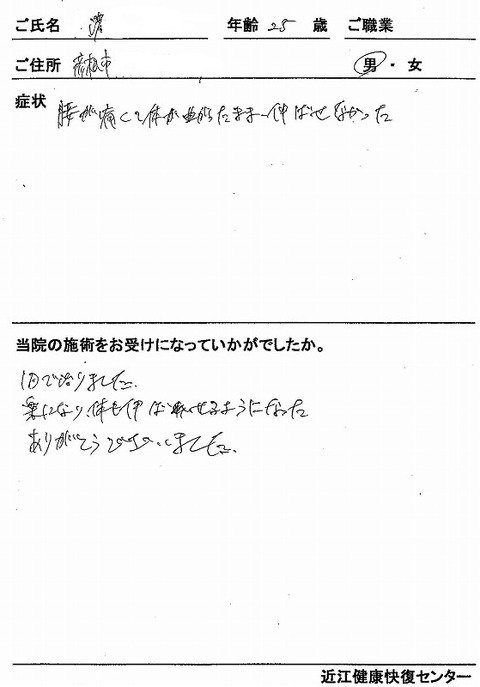 ご氏名 年齢 28 歳 ご職業
ご住所 彦根市 男・女
症状 腰が痛くて体が曲がったまま伸ばせなかった
当院の施術をお受けになっていかがでしたか。
1回で治りました。
楽になり、体も伸ばせるようになった
ありがとうございました。
近江健康快復センター